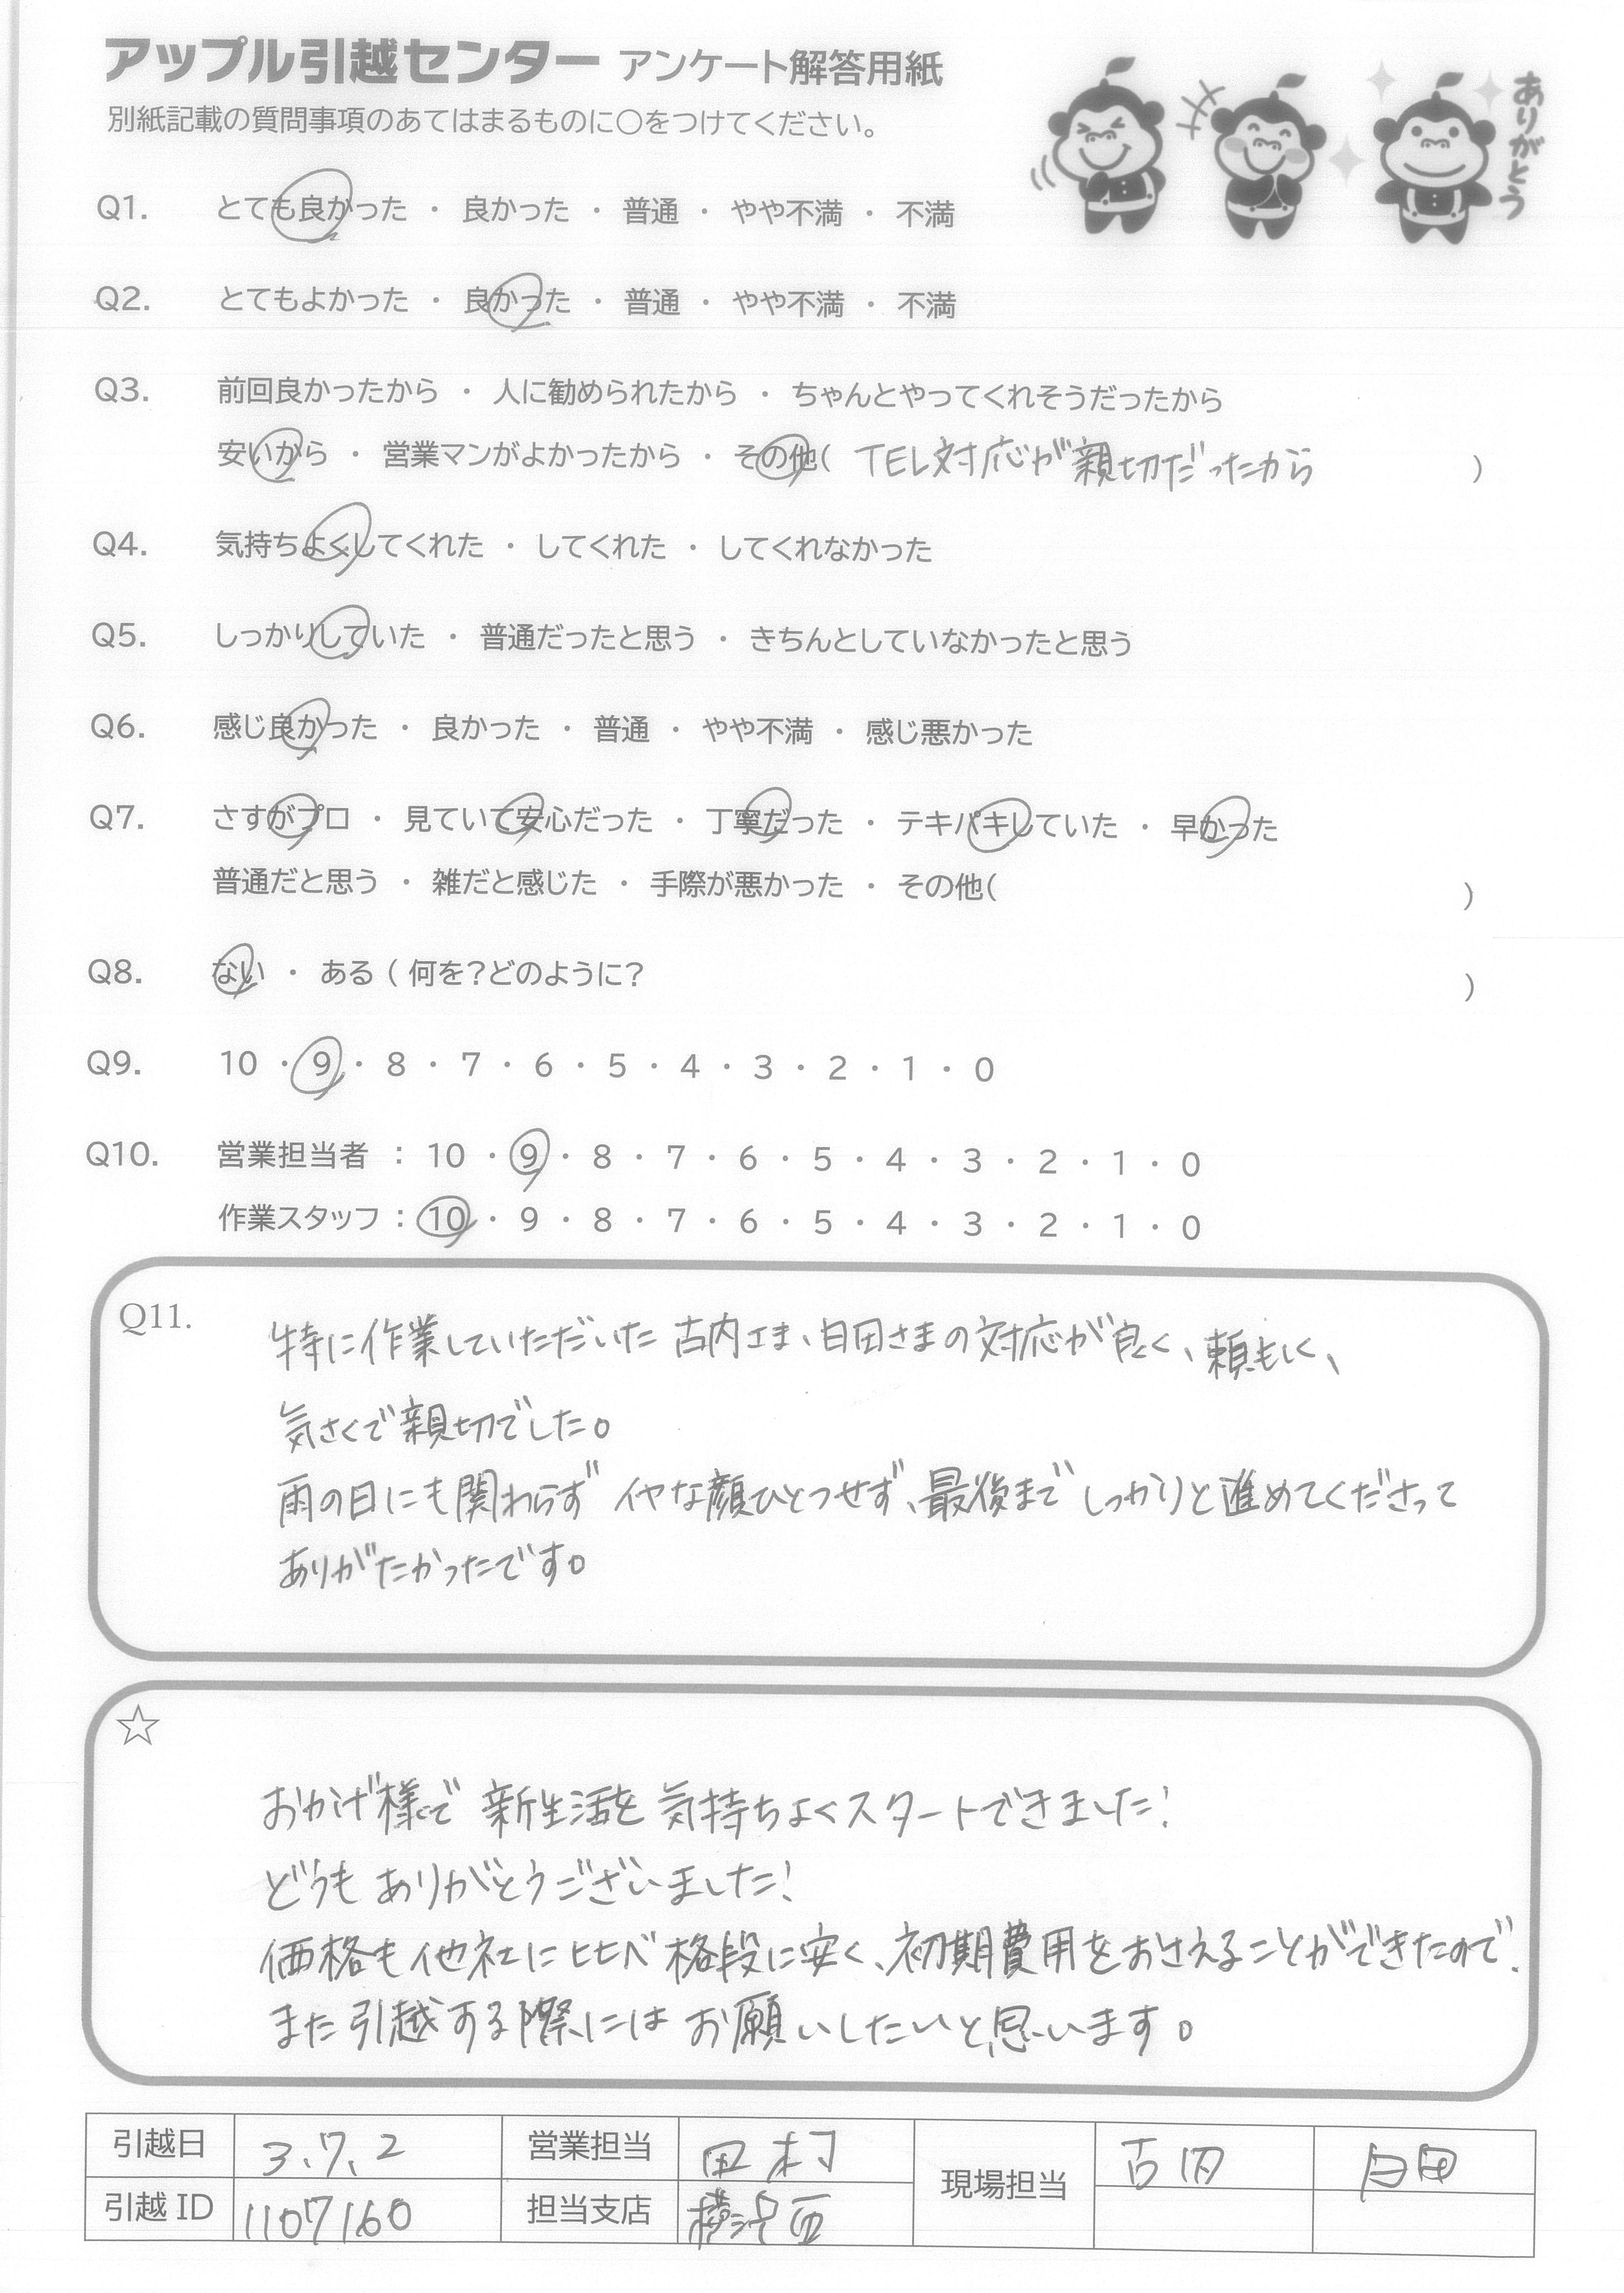 アップル引越センター アンケート解答用紙
別紙記載の質問事項のあてはまるものに○をつけてください。
ありがとう
Q1. とても良かった ・ 良かった ・ 普通 ・ やや不満 ・ 不満
Q2. とてもよかった ・ 良かった ・ 普通 ・ やや不満 ・ 不満
Q3. 前回良かったから ・ 人に勧められたから ・ ちゃんとやってくれそうだったから
安いから ・ 営業マンがよかったから ・ その他( TEL対応が親切だったから )
Q4. 気持ちよくしてくれた ・ してくれた ・ してくれなかった
Q5. しっかりしていた ・ 普通だったと思う ・ きちんとしていなかったと思う
Q6. 感じ良かった ・ 良かった ・ 普通 ・ やや不満 ・ 感じ悪かった
Q7. さすがプロ ・ 見ていて安心だった ・ 丁寧だった ・ テキパキしていた ・ 早かった
普通だと思う ・ 雑だと感じた ・ 手際が悪かった ・ その他( )
Q8. ない ・ ある ( 何を?どのように? )
Q9. 10 ・ 9 ・ 8 ・ 7 ・ 6 ・ 5 ・ 4 ・ 3 ・ 2 ・ 1 ・ 0
Q10. 営業担当者 : 10 ・ 9 ・ 8 ・ 7 ・ 6 ・ 5 ・ 4 ・ 3 ・ 2 ・ 1 ・ 0
作業スタッフ : 10 ・ 9 ・ 8 ・ 7 ・ 6 ・ 5 ・ 4 ・ 3 ・ 2 ・ 1 ・ 0
Q11. 特に作業していただいた 古内さま、臼田さまの対応が良く、頼もしく、
気さくで親切でした。
雨の日にも関わらず イヤな顔ひとつせず、最後まで しっかりと進めてくださって
ありがたかったです。
☆
おかげ様で 新生活を 気持ちよくスタートできました!
どうも ありがとうございました!
価格も他社に比べ 格段に安く、初期費用をおさえることができたので、
また引越する際には お願いしたいと思います。
引越日 3.7.2 営業担当 田村 現場担当 古内 臼田
引越 ID 1107160 担当支店 横浜西